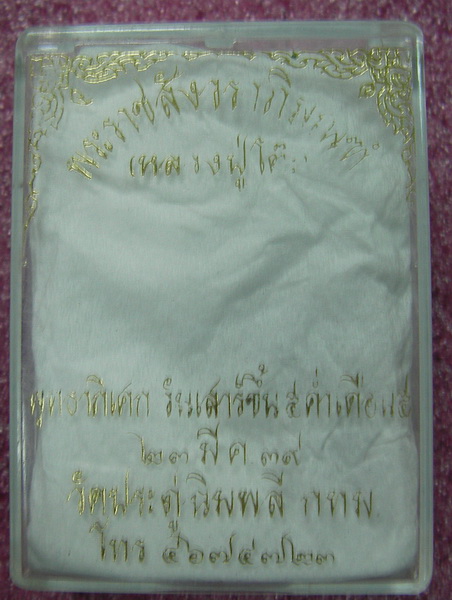 พระราชสังวราภิมณฑ์
(หลวงปู่โต๊ะ)
พุทธาภิเศก วันเสาร์ขึ้น ๕ ค่ำเดือน ๕
๒๓ มีค ๓๙
วัดประดู่ฉิมพลี กทม.
โทร ๔๖๗๔๗๒๓